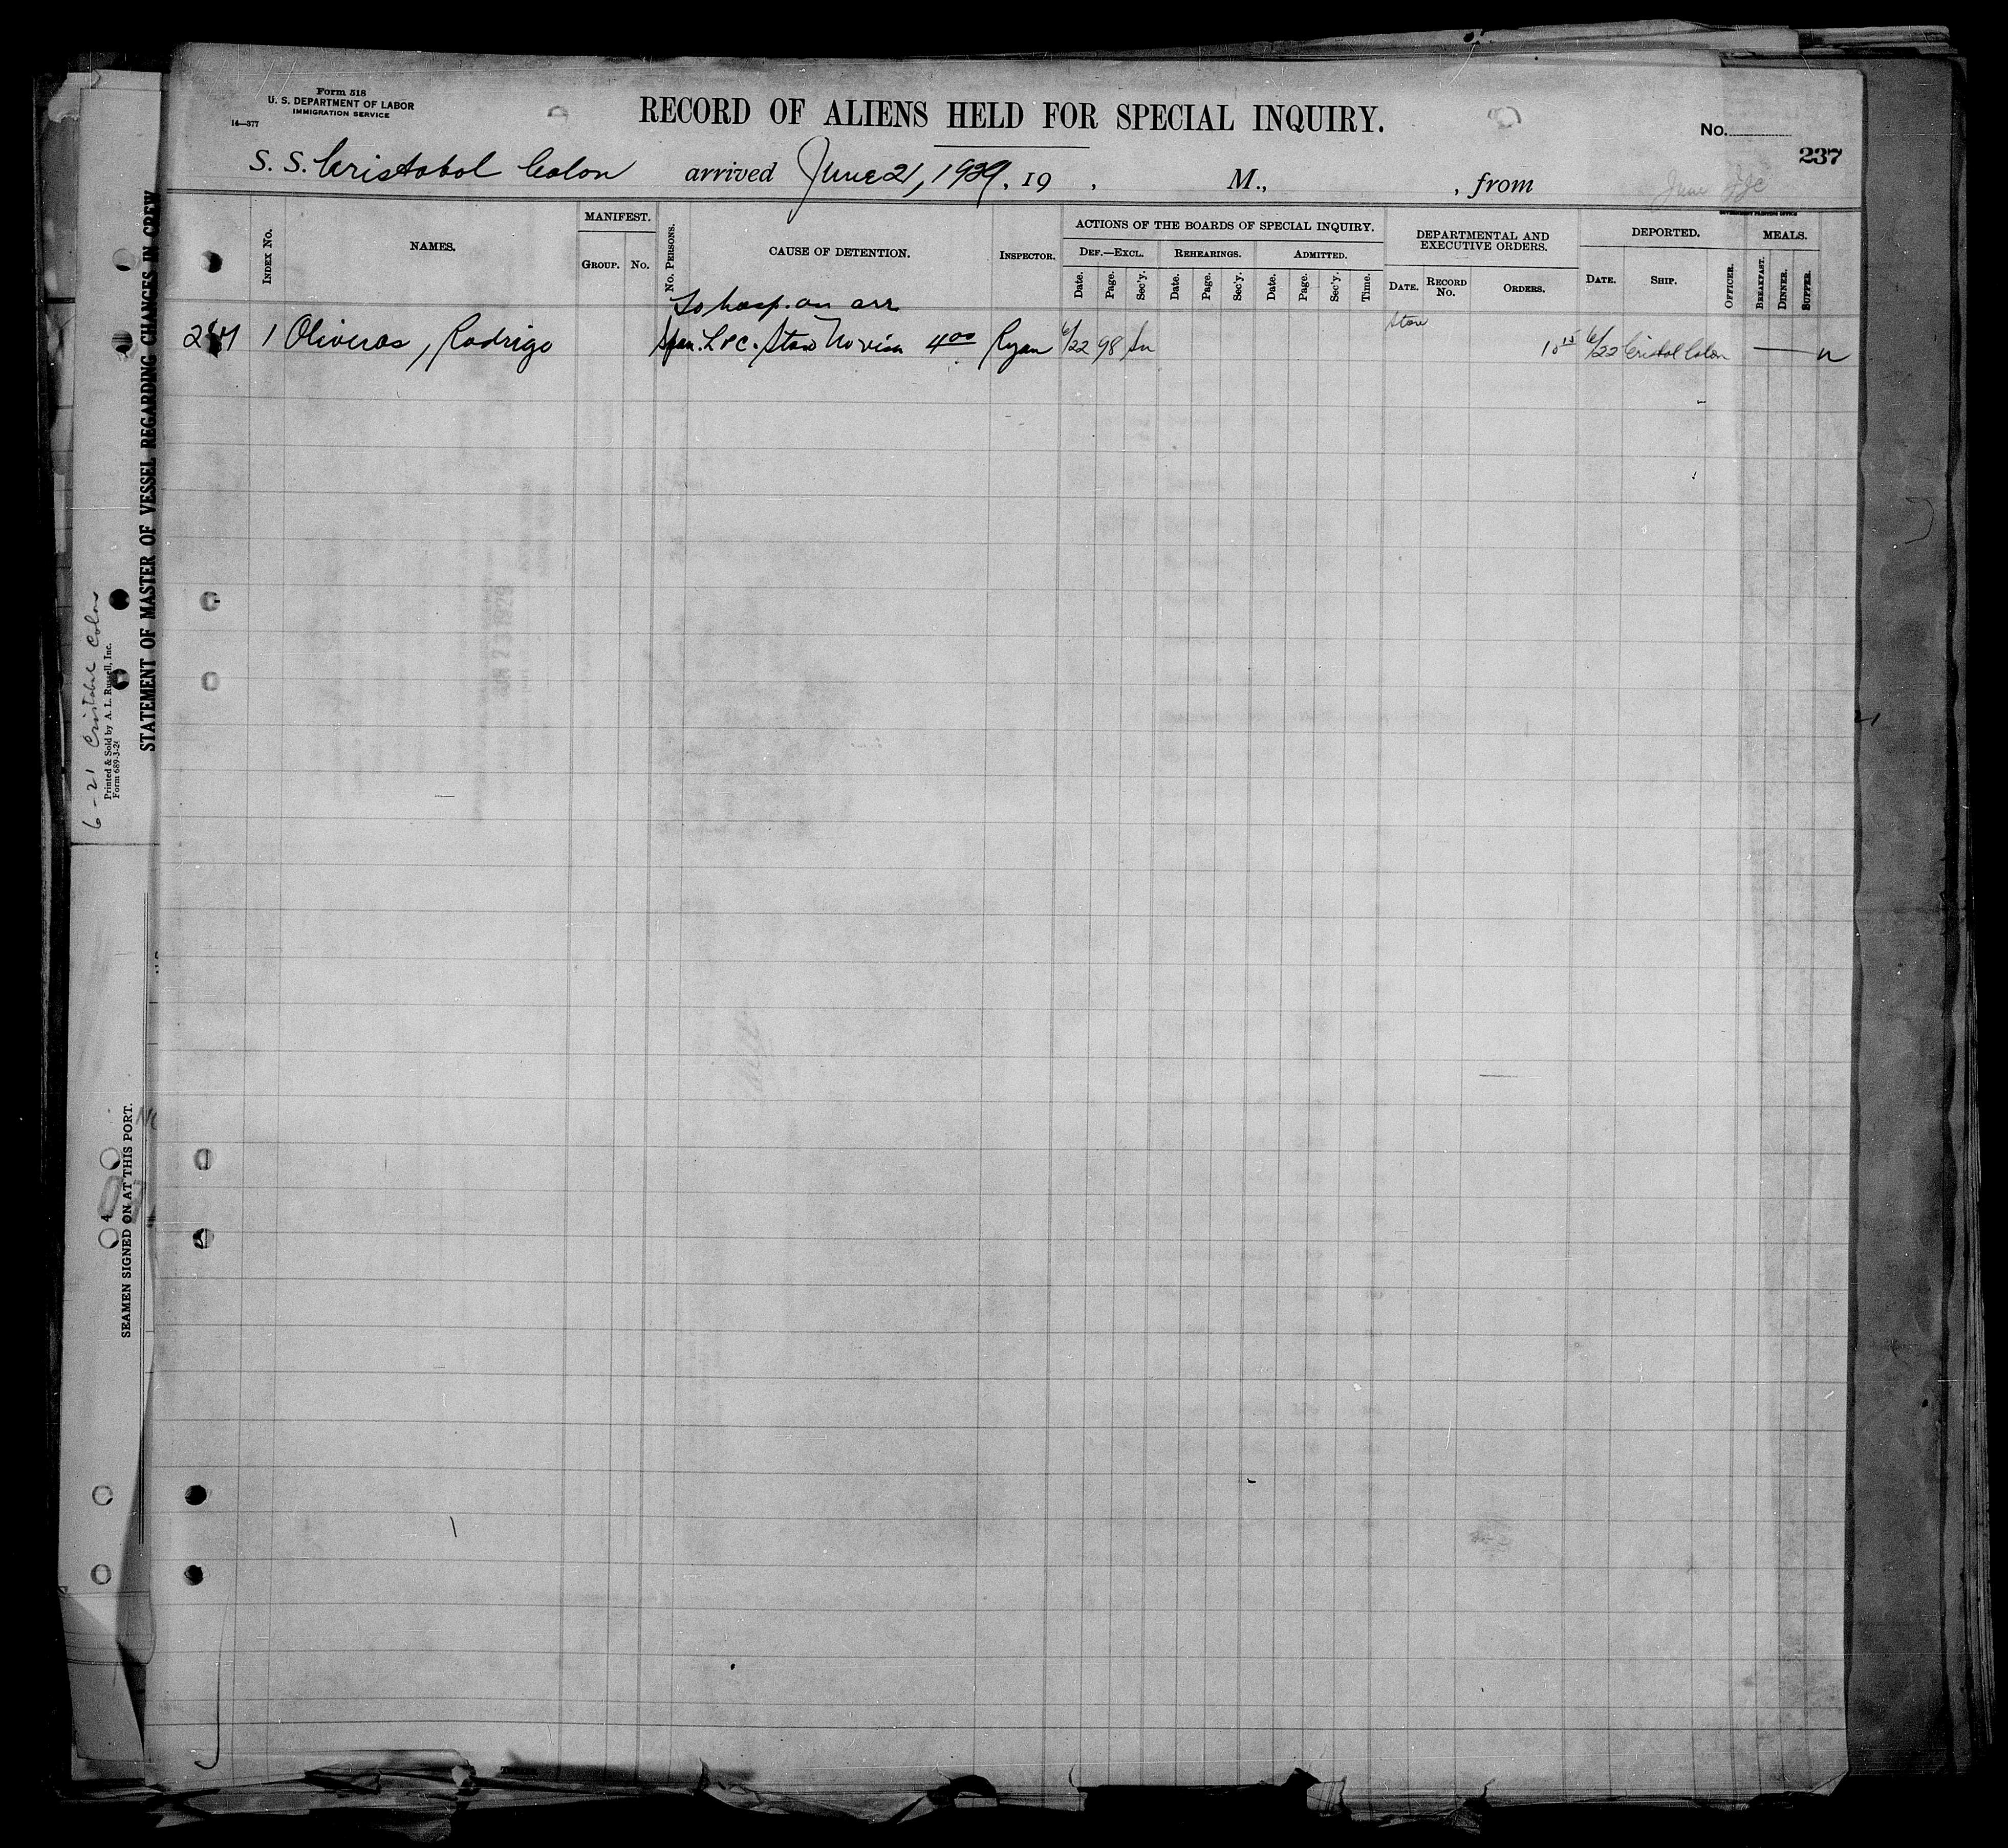 Form 518
U. S. DEPARTMENT OF LABOR
IMMIGRATION SERVICE
14—377
RECORD OF ALIENS HELD FOR SPECIAL INQUIRY.
No.
237
S. S. Cristobol Colon arrived June 21, 1929, 19 , M., , from
June
GOVERNMENT PRINTING OFFICE
INDEX NO.
NAMES.
MANIFEST.
GROUP. NO.
NO. PERSONS.
CAUSE OF DETENTION.
INSPECTOR.
ACTIONS OF THE BOARDS OF SPECIAL INQUIRY.
DEF.—EXCL. REHEARINGS. ADMITTED.
Date. Page. Sec'y. Date. Page. Sec'y. Date. Page. Sec'y. Time.
DEPARTMENTAL AND
EXECUTIVE ORDERS.
DATE. RECORD NO. ORDERS.
DEPORTED.
DATE. SHIP. OFFICER.
MEALS.
BREAKFAST. DINNER. SUPPER.
To hosp. on arr
Stow
1 Oliveras, Rodrigo Span. LPC. Stow No visa 4 00 Ryan 6/22 98 10 15 6/22 Cristol Colon
STATEMENT OF MASTER OF VESSEL REGARDING CHANGES IN CREW
6-21 Cristobal Colon
Printed & Sold by A. L. Russell, Inc.
Form 689-3-2
SEAMEN SIGNED ON AT THIS PORT.